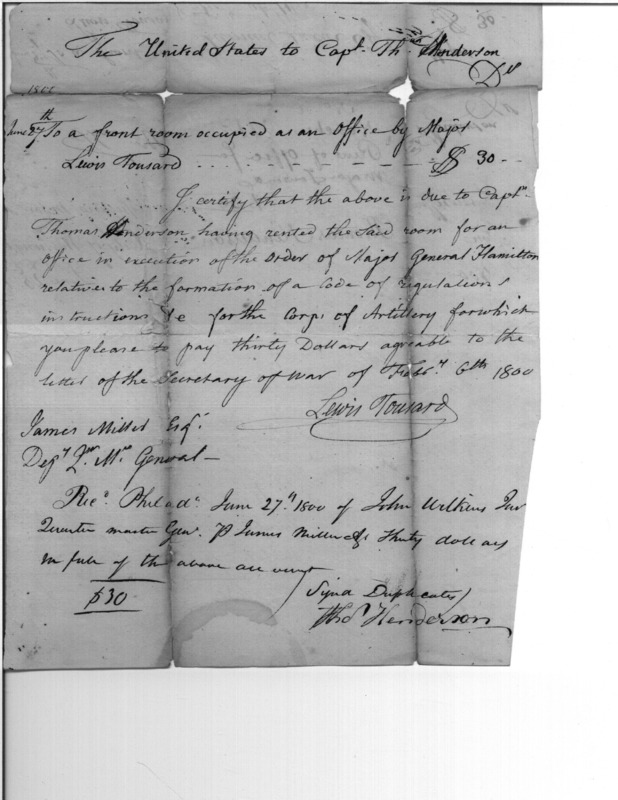 The United States to Capt. Thos. Henderson
Dr
1800
June 27th To a front room occupied as an Office by Major
Lewis Tousard $ 30 -
I certify that the above is due to Captn.
Thomas Henderson having rented the said room for an
office in execution of the order of Major General Hamilton
relative to the formation of a Code of regulations
instructions &c for the Corps of Artillery for which
you please to pay thirty Dollars agreable to the
letter of the Secretary of War of Feby. 6th 1800
Lewis Tousard
James Miller Esqr.
Depy Qr. Mr. General -
Recd. Philada. June 27th. 1800 of John Wilkins Jur
Quarter master Genl. P James Miller Thirty dollars
in full of the above account
$30
Signd Duplicates
Thos Henderson